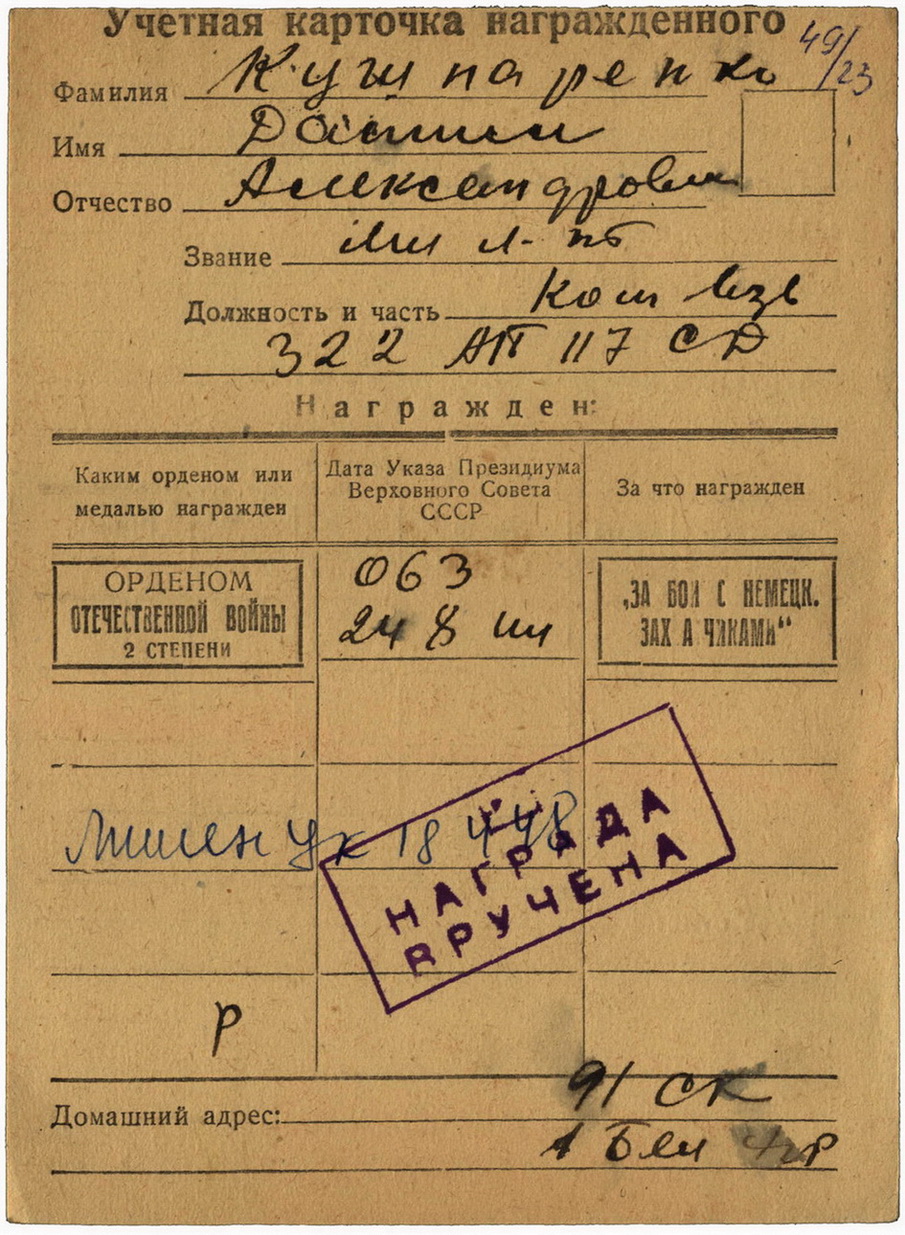 Учетная карточка награжденного
49/23
Фамилия Кушнаренко
Имя Даниил
Отчество Александрович
Звание мл л-нт
Должность и часть Ком взв
322 АП 117 СД
Награжден:
Каким орденом или медалью награжден
Дата Указа Президиума Верховного Совета СССР
За что награжден
ОРДЕНОМ
ОТЕЧЕСТВЕННОЙ ВОЙНЫ
2 СТЕПЕНИ
063
24 8 44
„ЗА БОИ С НЕМЕЦК.
ЗАХ А ЧИКАМИ“
ук 18 4 48
НАГРАДА
ВРУЧЕНА
Р
Домашний адрес:
91 СК
1 Бел